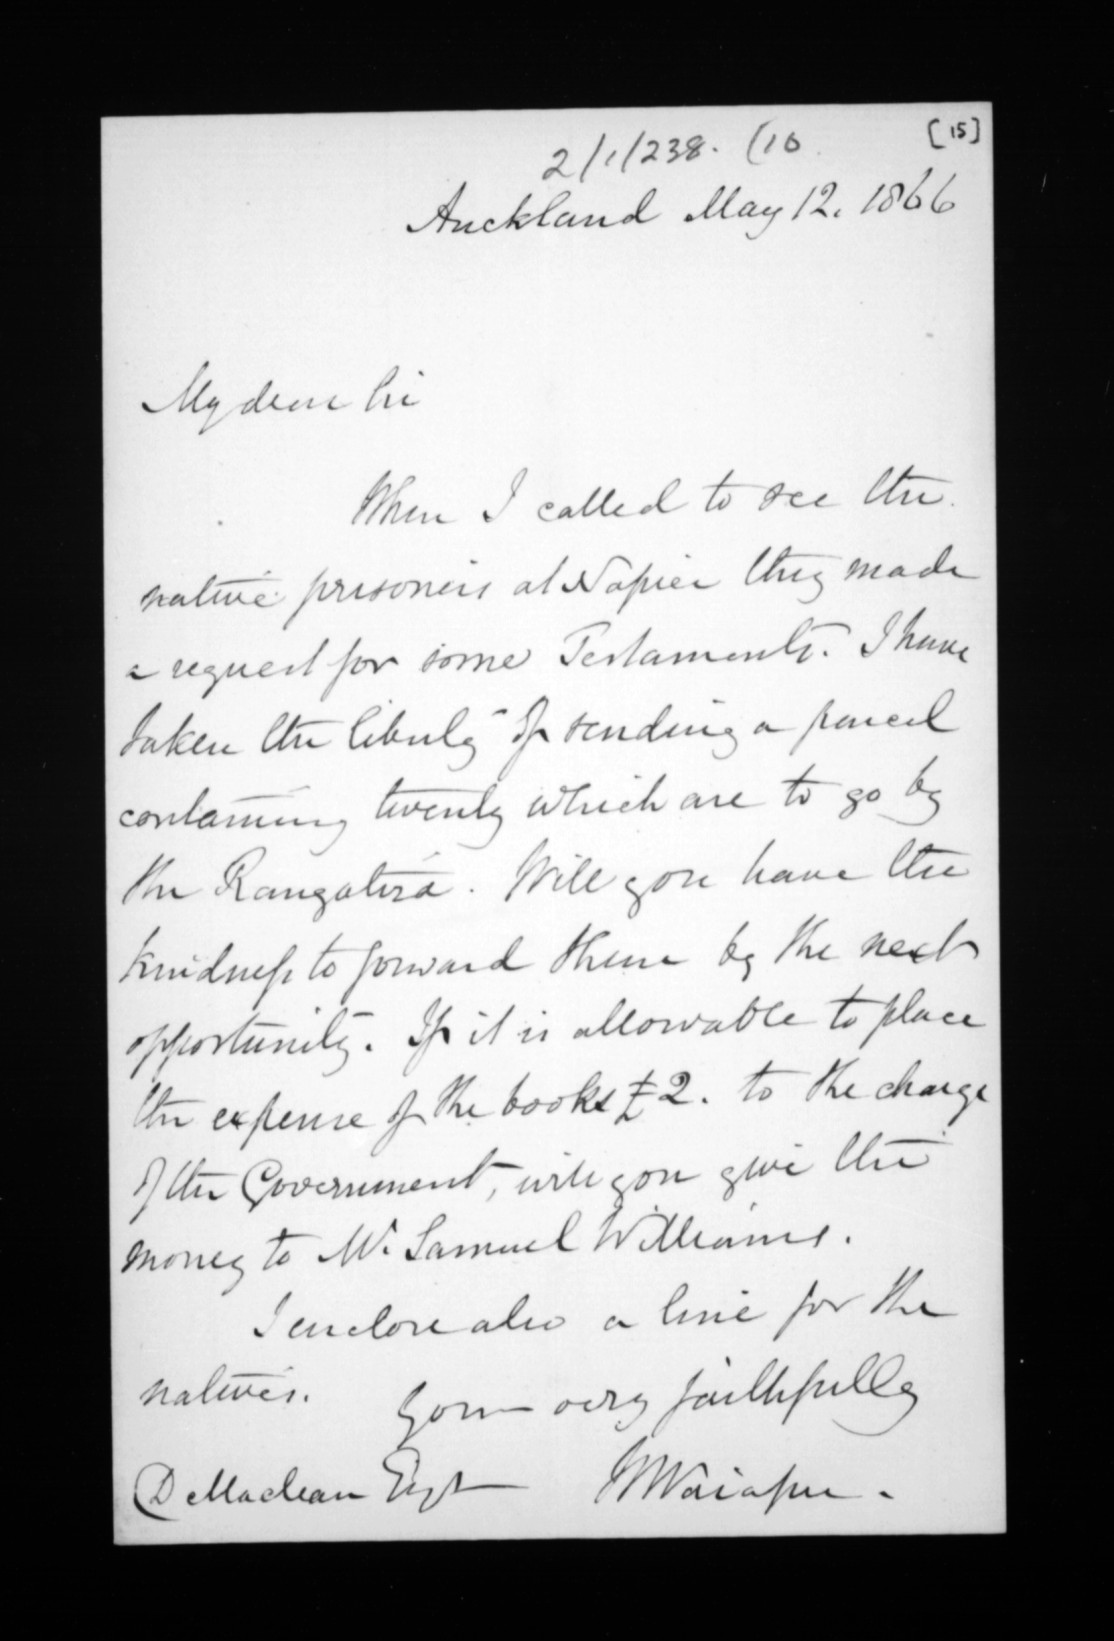 [15]
2/1/238. (10
Auckland May 12. 1866
My dear Sir
When I called to see the
native prisoners at Napier they made
a request for some Testaments. I have
taken the liberty of sending a parcel
containing twenty which are to go by
the Rangatira. Will you have the
kindness to forward them by the next
opportunity. If it is allowable to place
the expense of the books £2. to the charge
of the Government, will you give the
money to Mr. Samuel Williams.
I enclose also a line for the
natives.
Yours very faithfully
D Maclean Esqr W Waiapu.